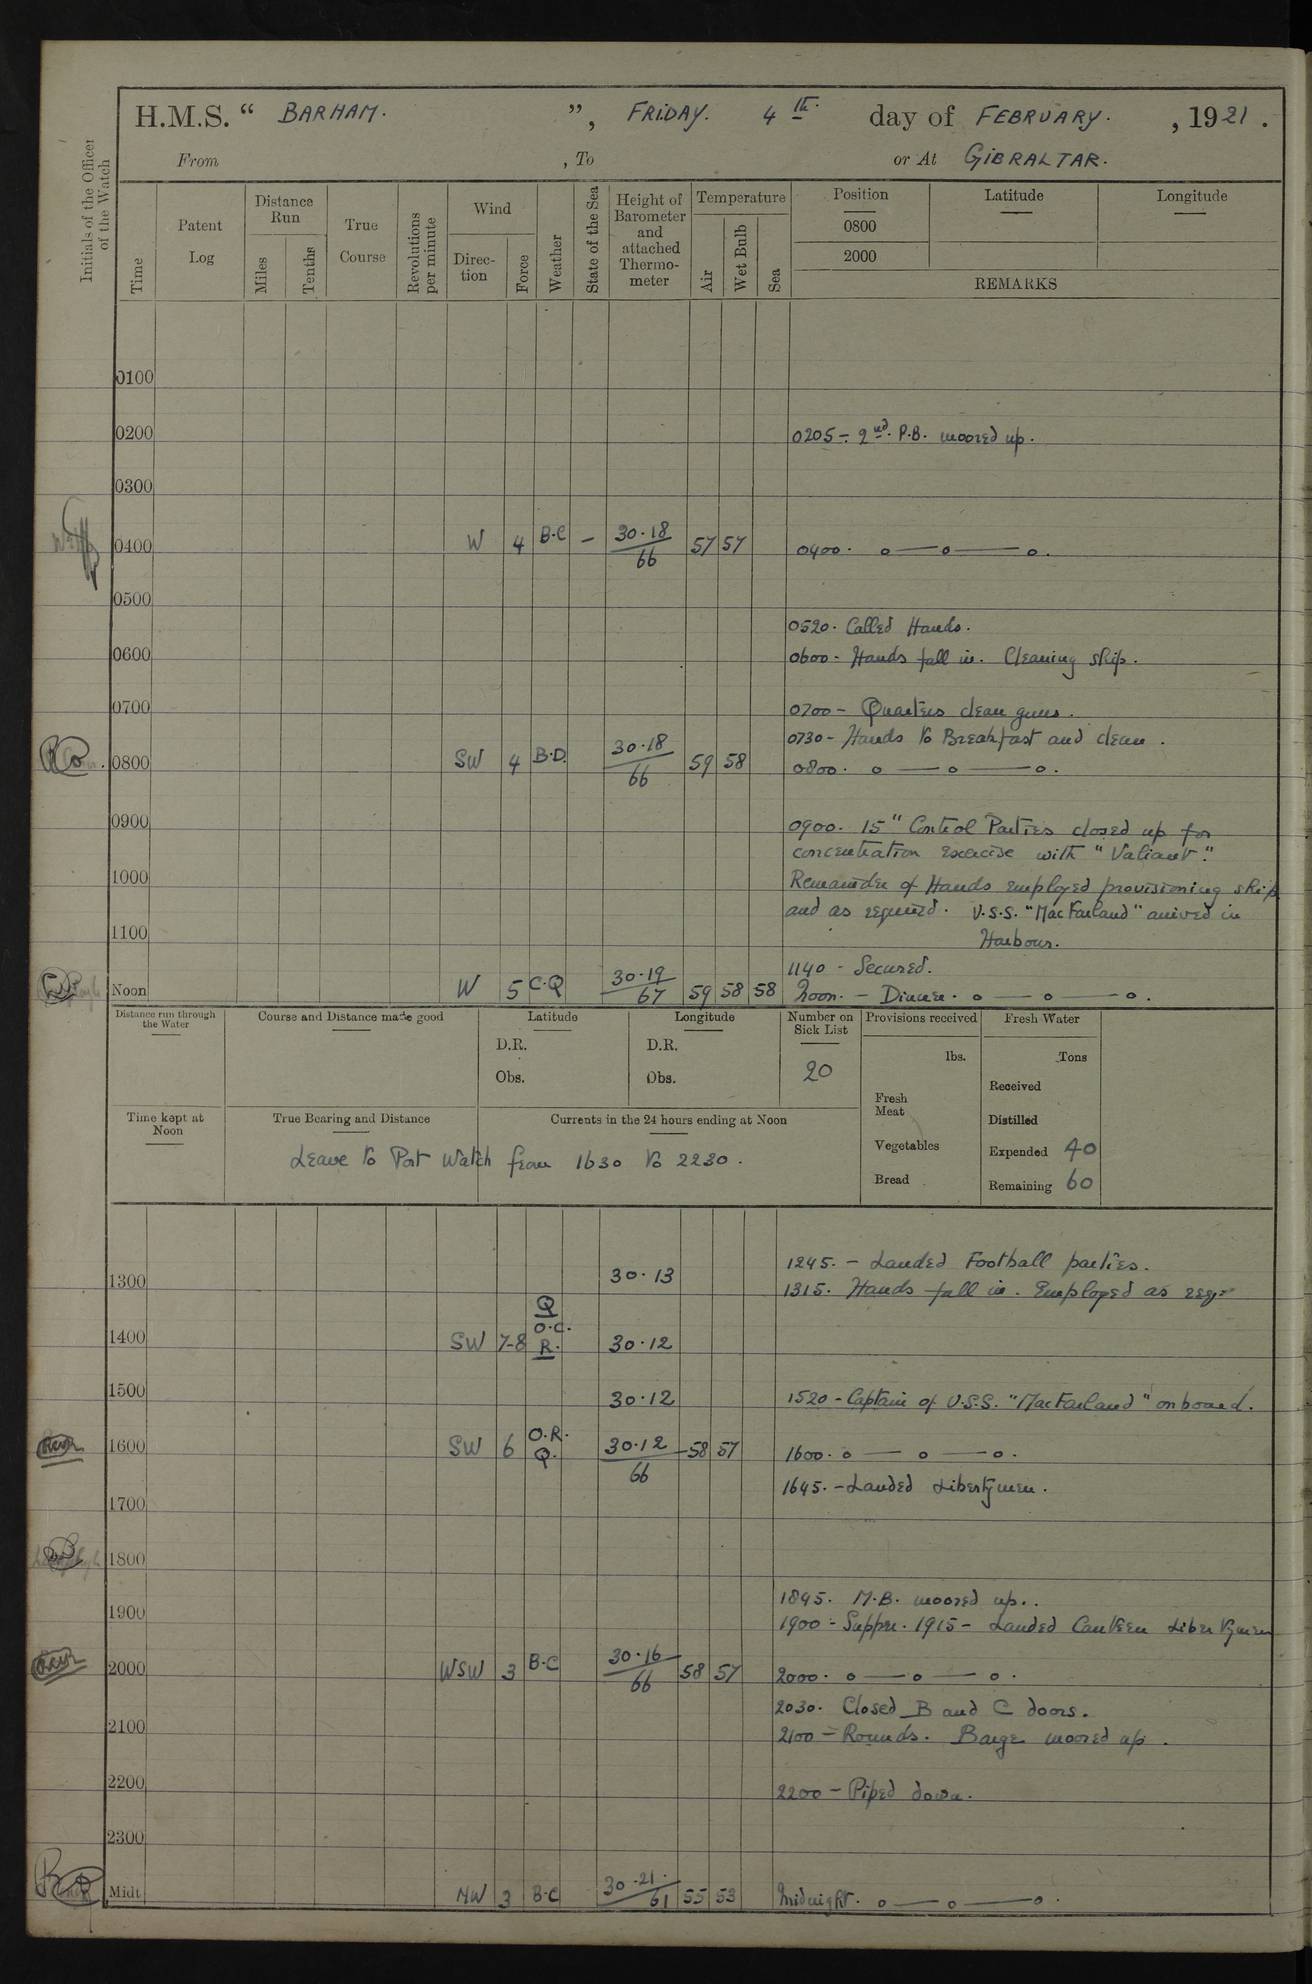 H.M.S. “ BARHAM. ”, FRIDAY. 4th. day of FEBRUARY. , 1921.
From , To or At GIBRALTAR.
Initials of the Officer of the Watch
Time
Patent Log
Distance Run
Miles
Tenths
True Course
Revolutions per minute
Wind
Direc-tion
Force
Weather
State of the Sea
Height of Barometer and attached Thermo-meter
Temperature
Air
Wet Bulb
Sea
Position
Latitude
Longitude
0800
2000
REMARKS
0100
0200 0205 - 2nd. P.B. moored up.
0300
0400 W 4 B.C — 30.18/66 57 57 0400. o — o — o.
0500
0520. Called Hands.
0600 0600 - Hands fall in. Cleaning ship.
0700 0700 - Quarters clean guns.
0730 - Hands to Breakfast and clean.
0800 SW 4 B.D. 30.18/66 59 58 0800. o — o — o.
0900 0900. 15" Control Parties closed up for
concentration exercise with "Valiant."
1000 Remainder of Hands employed provisioning ship
and as required. U.S.S. "MacFarland" arrived in
1100 Harbour.
1140 - Secured.
Noon W 5 C.Q 30.19/67 59 58 58 Noon. - Dinner. o — o — o.
Distance run through the Water
Course and Distance made good
Latitude
D.R.
Obs.
Longitude
D.R.
Obs.
Number on Sick List
20
Provisions received
lbs.
Fresh Meat
Vegetables
Bread
Fresh Water
Tons
Received
Distilled
Expended 40
Remaining 60
Time kept at Noon
True Bearing and Distance
Currents in the 24 hours ending at Noon
Leave to Port Watch from 1630 to 2230.
1245. - Landed Football parties.
1300 30.13 1315. Hands fall in. Employed as req:
1400 SW 7-8 Q O.C. R. 30.12
1500 30.12 1520 - Captain of U.S.S. "MacFarland" on board.
1600 SW 6 O.R. Q. 30.12/66 58 57 1600. o — o — o.
1645. - Landed Libertymen.
1700
1800
1845. M.B. moored up..
1900 1900 - Supper. 1915 - Landed Canteen Libertymen
2000 WSW 3 B.C 30.16/66 58 57 2000. o — o — o.
2030. Closed B and C doors.
2100 2100 - Rounds. Barge moored up.
2200 2200 - Piped down.
2300
Midt NW 3 B.C 30.21./61 55 53 Midnight. o — o — o.